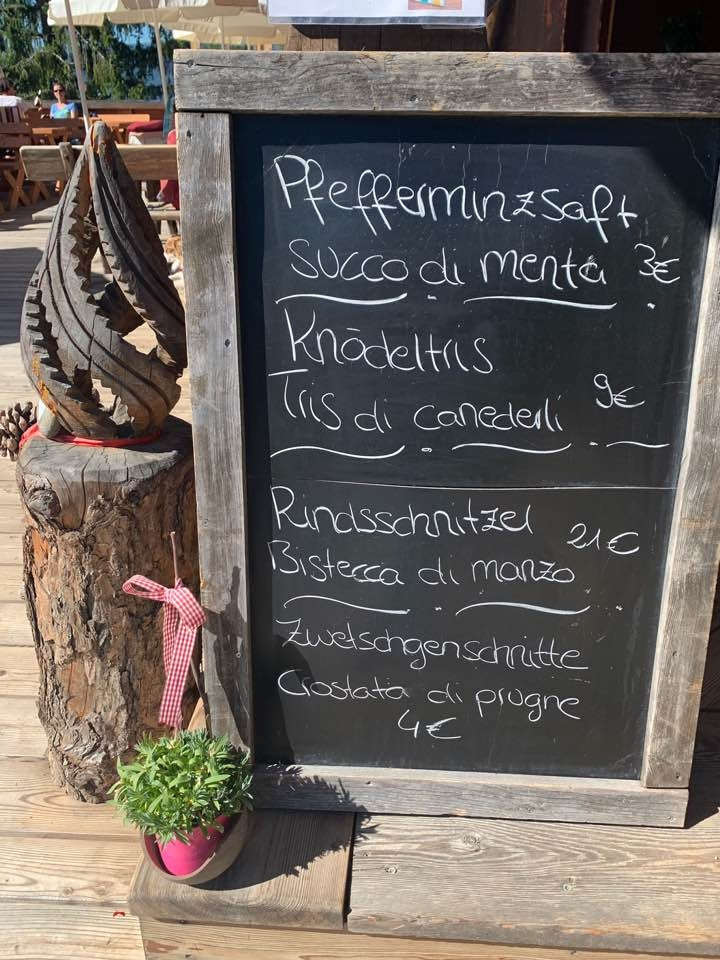 Pfefferminzsaft
succo di menta 3€
Knödeltris
Tris di canederli 9€
Rindsschnitzel 21€
Bistecca di manzo
Zwetschgenschnitte
Crostata di prugne
4€